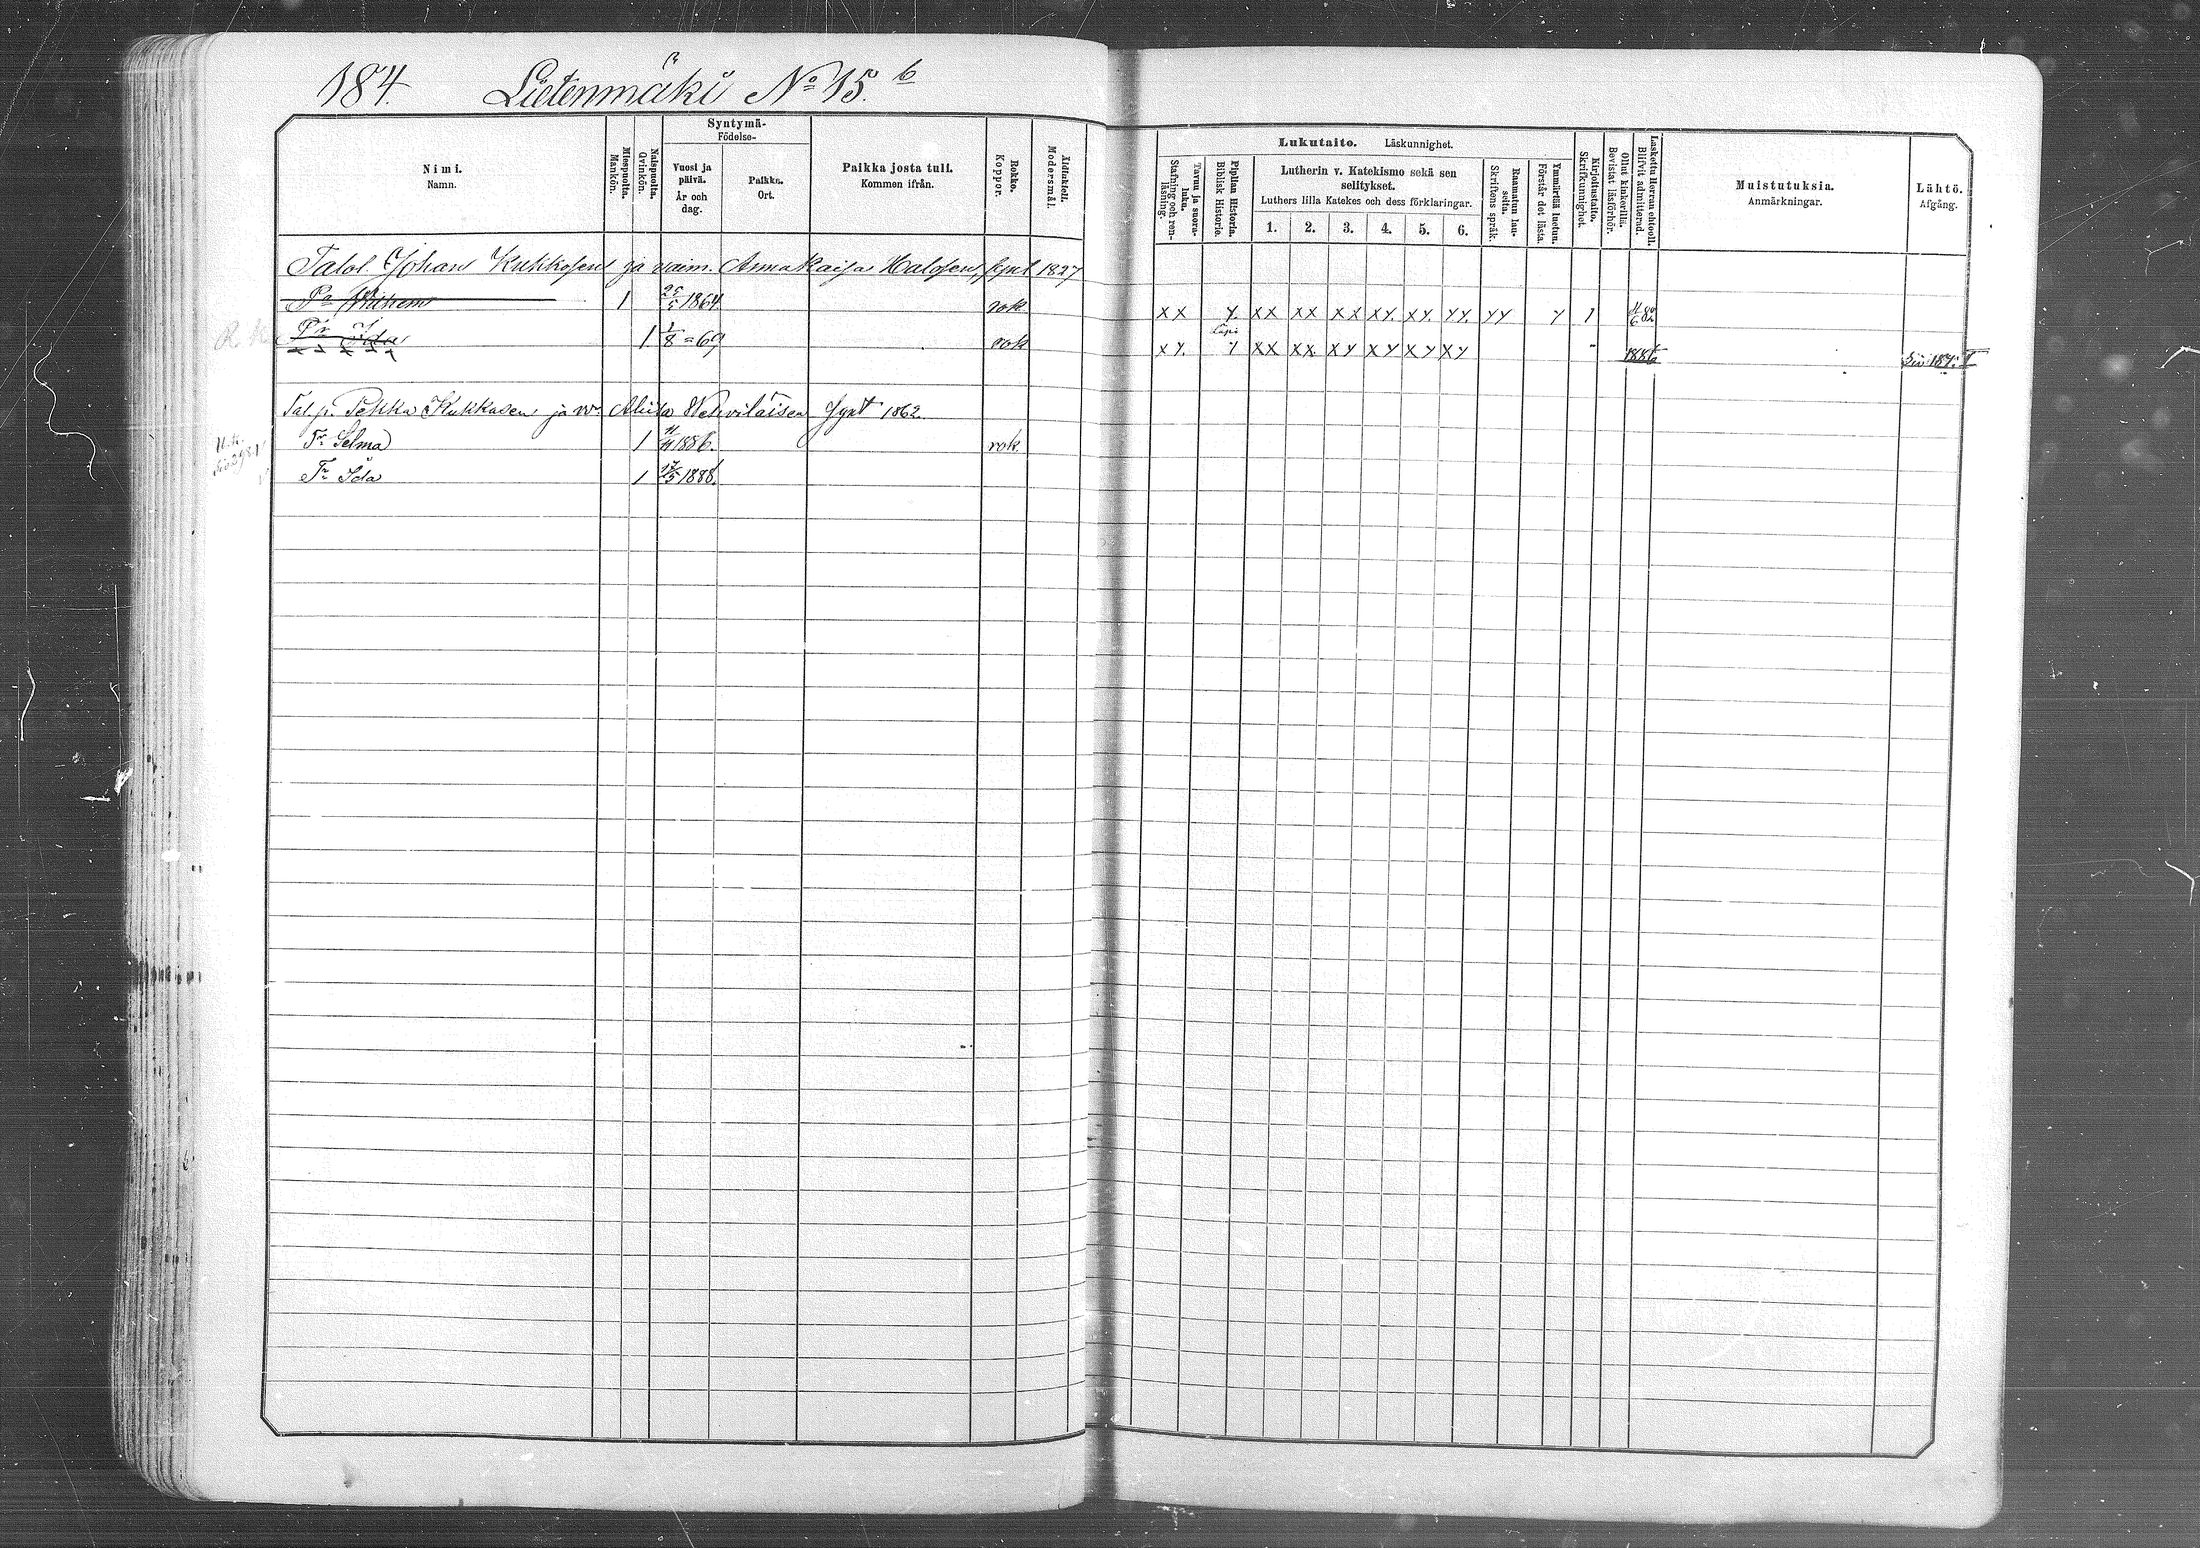 184. Lietenmäki No 15.b
Syntymä-
Födelse-
Nimi.
Namn.
Miespuolta.
Mankön.
Naispuolta.
Qvinkön.
Vuosi ja päivä.
År och dag.
Paikka.
Ort.
Paikka josta tuli.
Kommen ifrån.
Rokko.
Koppor.
Äidinkieli.
Modersmål.
Lukutaito. Läskunnighet.
Tavuu ja suora-luku.
Stafning och ren-läsning.
Piplian Historia.
Biblisk Historie.
Lutherin v. Katekismo sekä sen selitykset.
Luthers lilla Katekes och dess förklaringar.
1. 2. 3. 4. 5. 6.
Raamatun lau-seita.
Skriftens språk.
Ymmärtää luetun.
Förstår det lästa.
Kirjoitustaito.
Skrifkunnighet.
Ollut kinkerillä.
Bevistat läsförhör.
Laskettu Herran ehtooll.
Blifvit admitterad.
Muistutuksia.
Anmärkningar.
Lähtö.
Afgång.
Talol. Johan Kukkosen ja vaim. Anna Kaisa Halosen, synt 1827
Pa Wilhem 1 25/5 1864. rok. XX y. XX XX XX XY. XY. YY. YY Y 1
Tr Ida 1 1/8 = 69 rok XY. Y XX XX. XY XY XY XY 1886 Siv 184. I
Tal. p. Pekka Kukkosen ja v. Aliisa Wehviläisen synt 1862.
Tr Selma 1 11/11 1886. rok.
Tr Ida 1 17/5 1888.